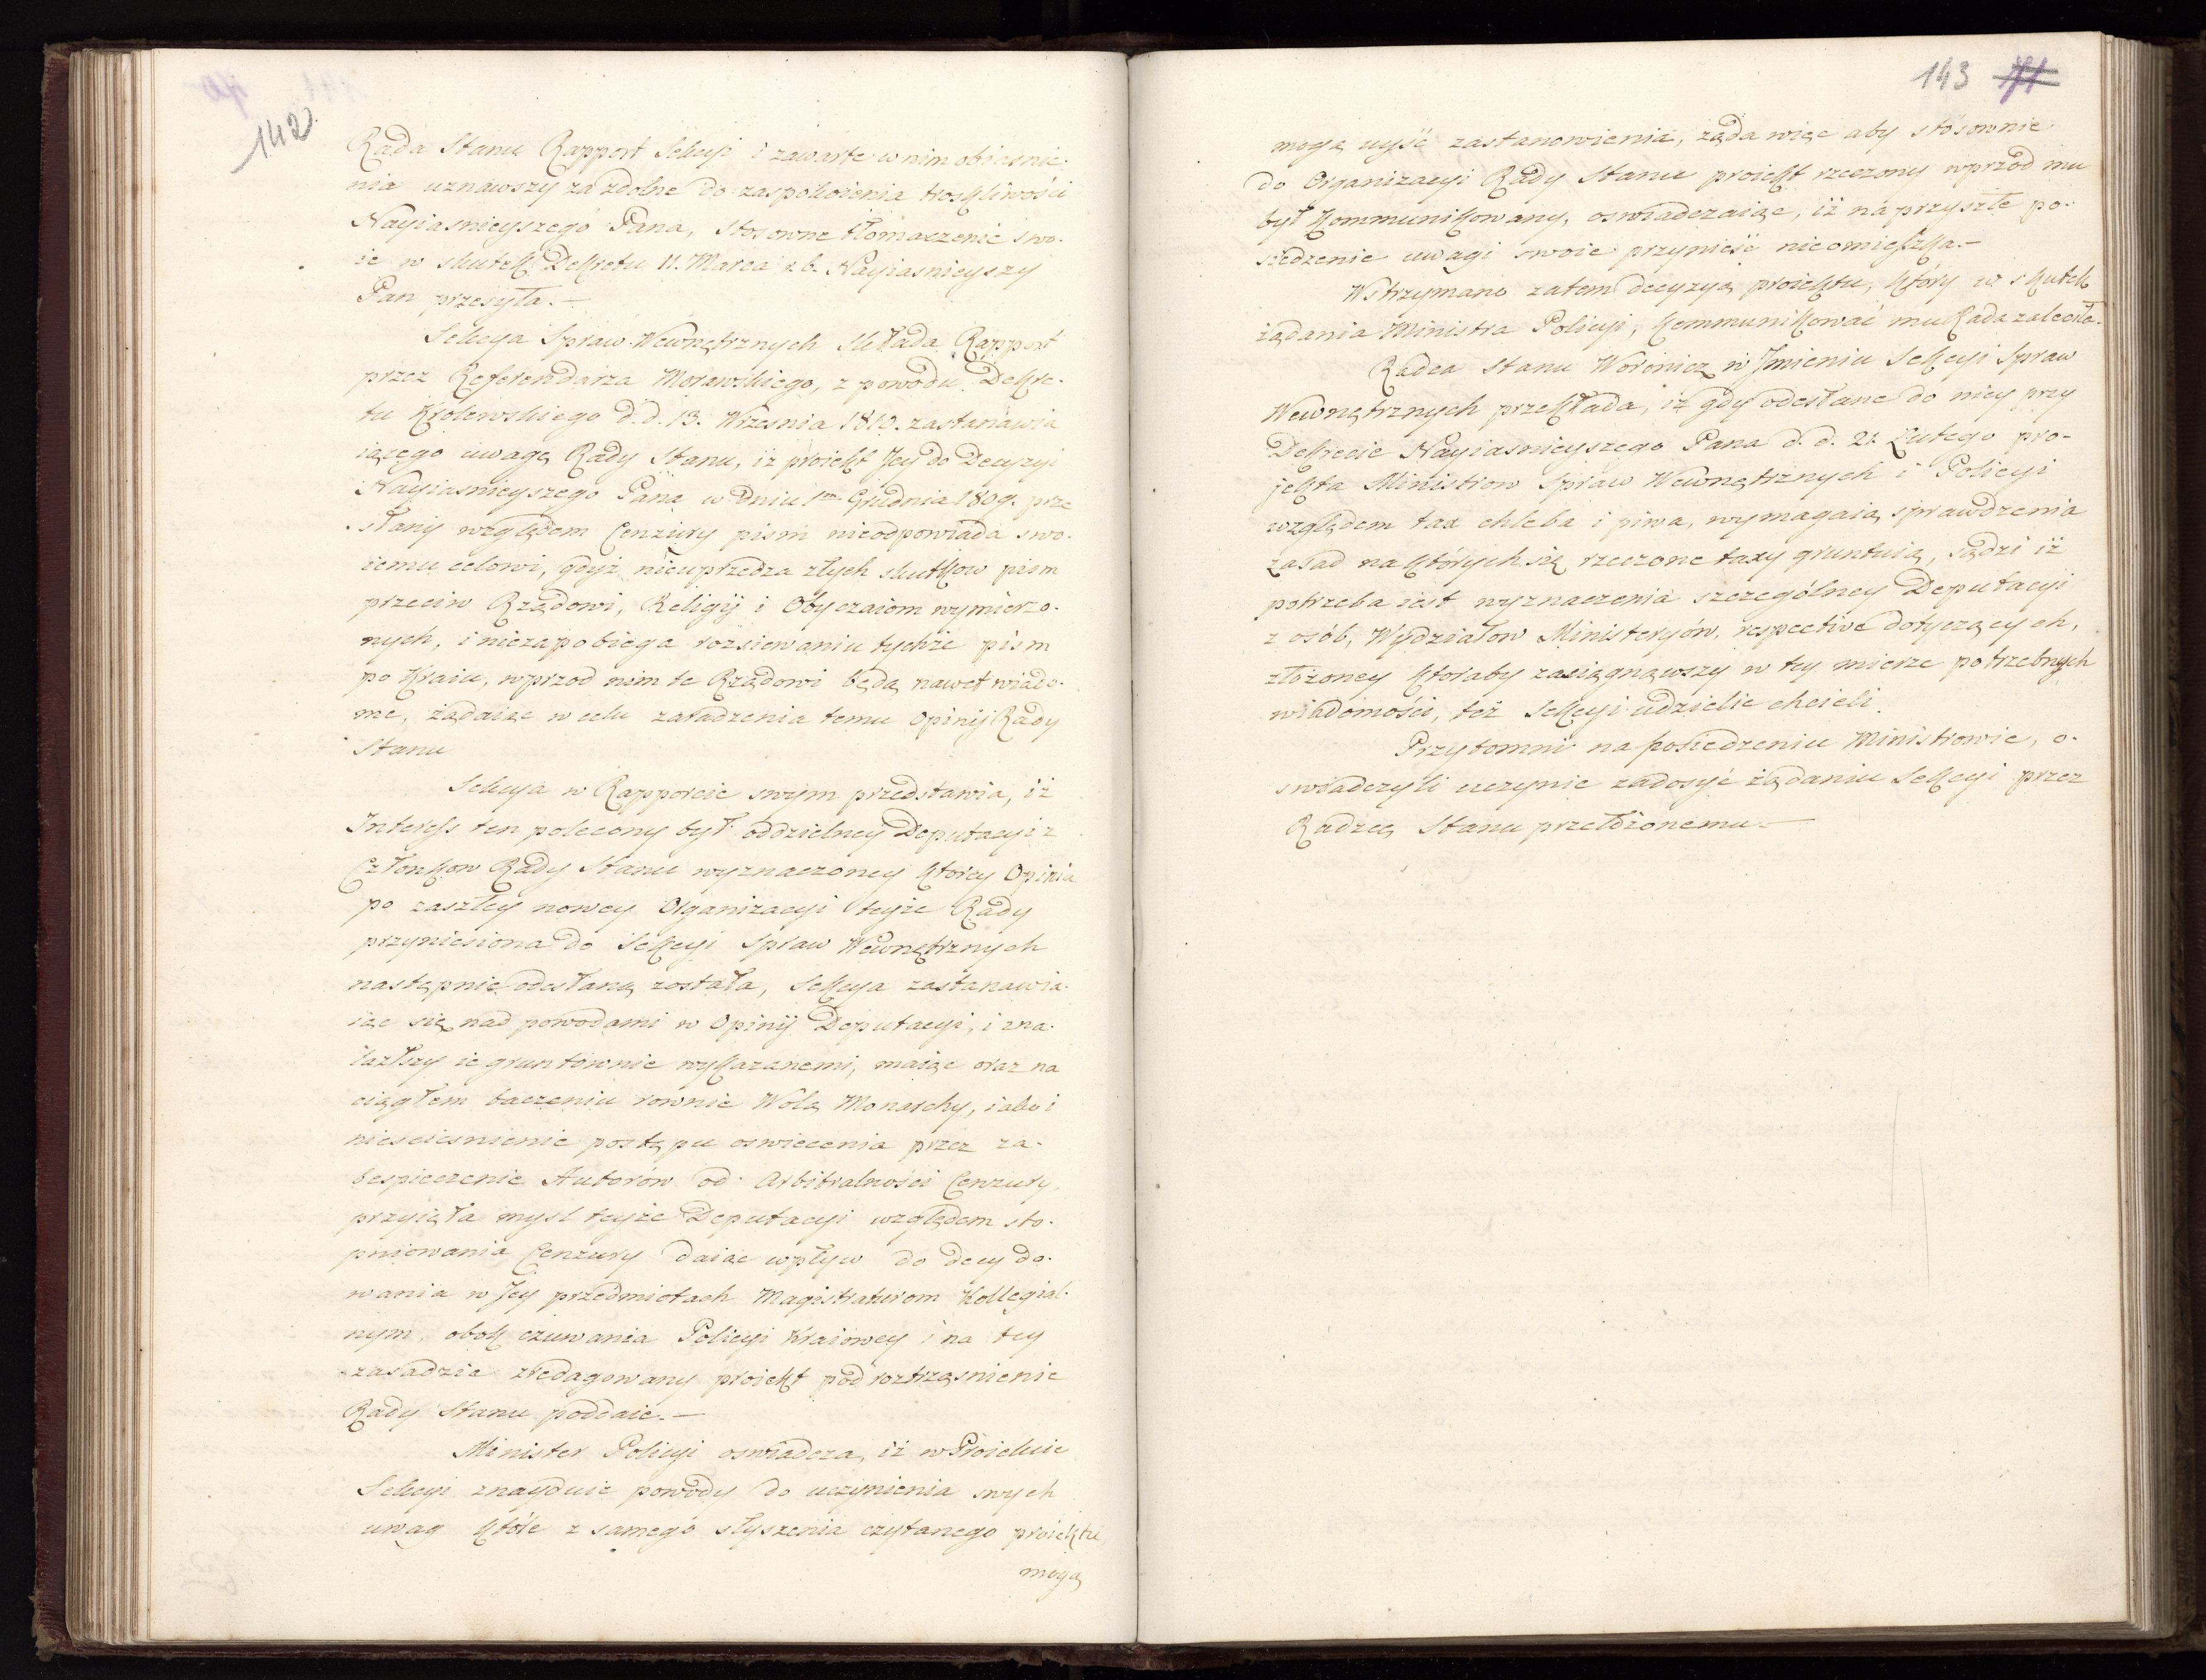 142.
Rada Stanu Rapport Sekcyi i zawarte w nim obiasnie-
nia uznawszy za zdolne do zaspokoienia troskliwości
Nayiasnieyszego Pana, stosowne tłomaczenie swo-
ie w skutek Dekretu 11. Marca r.b. Nayiasnieyszy
Pan przesyła.—
Sekcya Spraw Wewnętrznych składa Rapport
przez Referendarza Morawskiego, z powodu Dekre-
tu Krolewskiego d.d. 13. Wrzesnia 1810. zastanawia
iącego uwagę Rady Stanu, iż proiekt Jey do Decyzyi
Nayiasnieyszego Pana w Dniu 1m Grudnia 1809. prze
słany względem Cenzury pism nieodpowiada swo-
iemu celowi, gdyż nieuprzedza złych skutkow pism
przeciw Rządowi, Religij i Obyczaiom wymierzo-
nych, i niezapobiega rozsiewaniu tychże pism
po Kraiu, wprzod nim te Rządowi będą nawet wiado-
me, żądaiąc w celu zaradzenia temu Opinij Rady
Stanu
Sekcya w Rapporcie swym przedstawia, iż
Interess ten polecony był oddzielney Deputacyi z
Członkow Rady Stanu wyznaczoney ktorey Opinia
po zaszłey nowey Organizacyi teyże Rady
przyniesiona do Sekcyi Spraw Wewnętrznych
następnie odesłaną została, Sekcya zastanawia-
iąc się nad powodami w Opinij Deputacyi, i zna-
lazłszy ie gruntownie wykazanemi, maiąc oraz na
ciągłem baczeniu rownie Wolą Monarchy, iako i
niesciesnienie postępu oswiecenia przez za-
bespieczenie Autorów od Arbitralności Cenzury,
przyięła mysl teyże Deputacyi względem sto-
pniowania Cenzury daiąc wpływ do decydo-
wania w Jey przedmiotach Magistraturom Kollegial-
nym, obok czuwania Policyi Kraiowey i na tey
zasadzie zredagowany proiekt pod roztrząsnienie
Rady Stanu poddaie.—
Minister Policyi oswiadcza, iż w Proiekcie
Sekcyi znayduie powody do uczynienia swych
uwag które z samego słyszenia czytanego proiektu,
mogą
143 71
mogą uyść zastanowienia, żąda więc aby stosownie
do Organizacyi Rady Stanu proiekt rzeczony wprzód mu
był kommunikowany, oswiadczaiąc, iż na przyszłe po-
siedzenie uwagi swoie przynieść nieomieszka.—
Wstrzymano zatem decyzyą proiektu, który w skutek
żądania Ministra Policyi, kommunikować mu Rada zaleciła.
Radca Stanu Woronicz w Jmieniu Sekcyi Spraw
Wewnętrznych przekłada, iż gdy odesłane do niey przy
Dekrecie Nayiasnieyszego Pana d. d. 21. Lutego pro-
jekta Ministrow Spraw Wewnętrznych i Policyi
względem tax chleba i piwa, wymagaią sprawdzenia
zasad na których się rzeczone taxy gruntuią, sądzi iż
potrzeba iest wyznaczenia szczególney Deputacyi
z osób, Wydziałow Ministeryów, respective dotyczących,
złożoney któraby zasiągnąwszy w tey mierze potrzebnych
wiadomości, też Sekcyi udzielic chcieli.
Przytomni na posiedzeniu Ministrowie, o-
swiadczyli uczynic zadosyć żądaniu Sekcyi przez
Radzcę Stanu przełożonemu.—